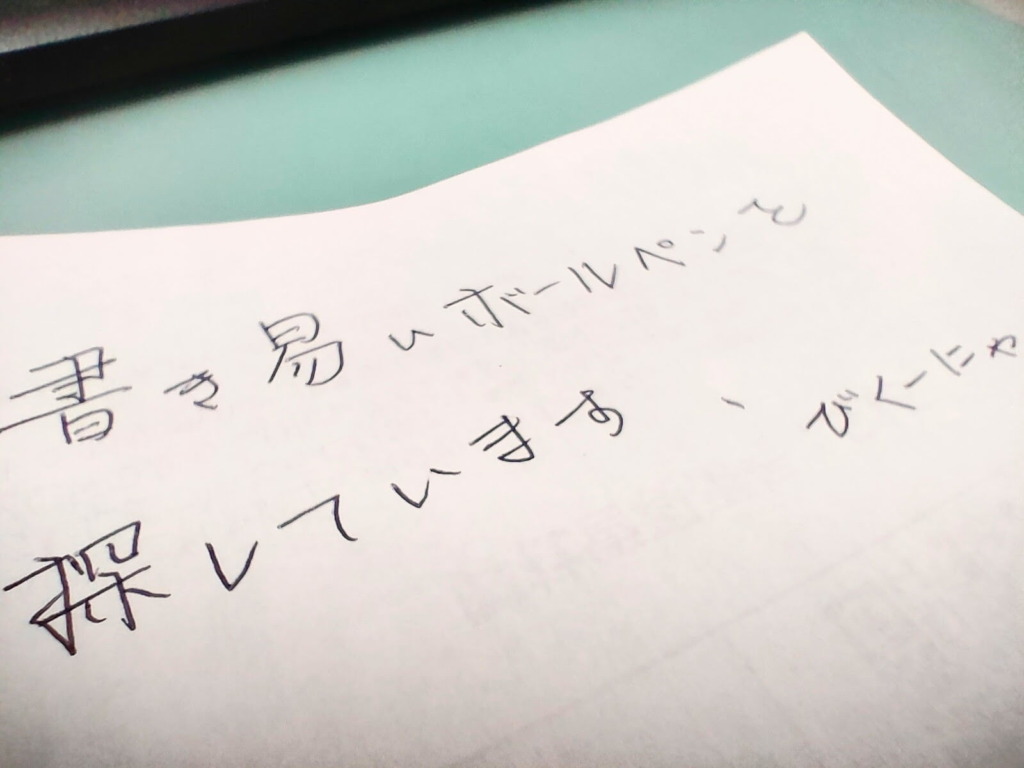 書き易いボールペンを
探しています、びくーにゃ